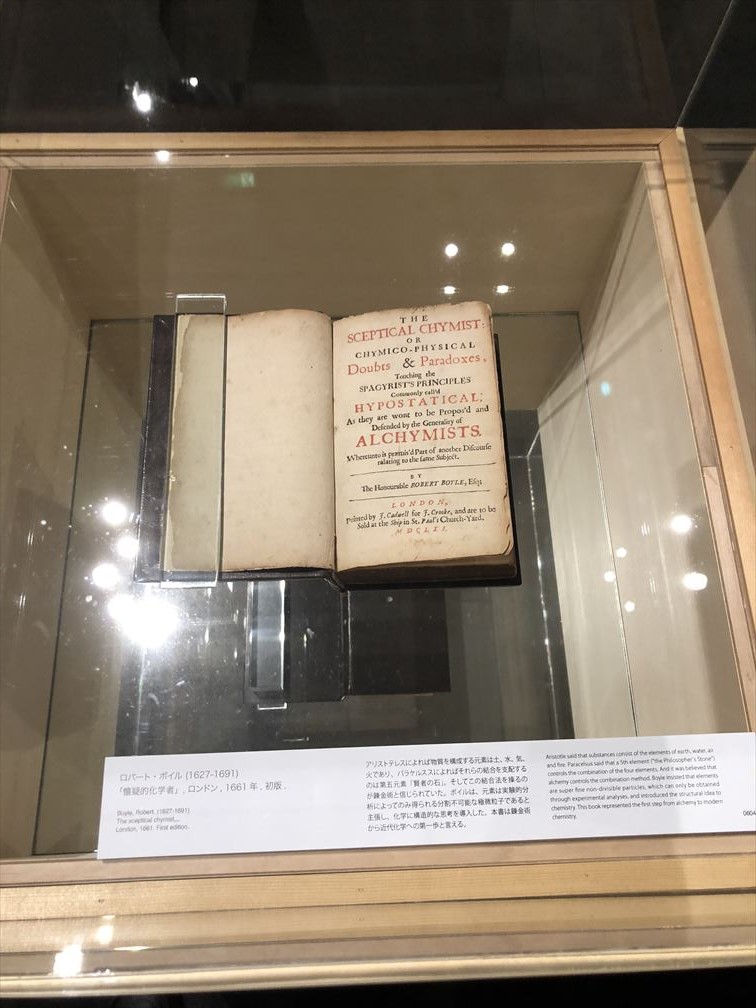 THE
SCEPTICAL CHYMIST:
OR
CHYMICO-PHYSICAL
Doubts & Paradoxes,
Touching the
SPAGYRIST'S PRINCIPLES
Commonly call'd
HYPOSTATICAL,
As they are wont to be Propos'd and
Defended by the Generality of
ALCHYMISTS.
Whereunto is præmis'd Part of another Discourse
relating to the same Subject.
BY
The Honourable ROBERT BOYLE, Esq;
LONDON,
Printed by J. Cadwell for J. Crooke, and are to be
Sold at the Ship in St. Paul's Church-Yard.
MDCLXI.
ロバート・ボイル (1627-1691)
「懐疑的化学者」, ロンドン , 1661 年 , 初版 .
Boyle, Robert. (1627-1691)
The sceptical chymist,,,
London, 1661. First edition.
アリストテレスによれば物質を構成する元素は土、水、気、
火であり、パラケルススによればそれらの結合を支配する
のは第五元素「賢者の石」。そしてこの結合法を操るの
が錬金術と信じられていた。ボイルは、元素は実験的分
析によってのみ得られる分割不可能な極微粒子であると
主張し、化学に構造的な思考を導入した。本書は錬金術
から近代化学への第一歩と言える。
Aristotle said that substances consist of the elements of earth, water, air
and fire. Paracelsus said that a 5th element ("the Philosopher's Stone")
controls the combination of the four elements. And it was believed that
alchemy controls the combination method. Boyle insisted that elements
are super fine non-divisible particles, which can only be obtained
through experimental analyses, and introduced the structural idea to
chemistry. This book represented the first step from alchemy to modern
chemistry.
0604